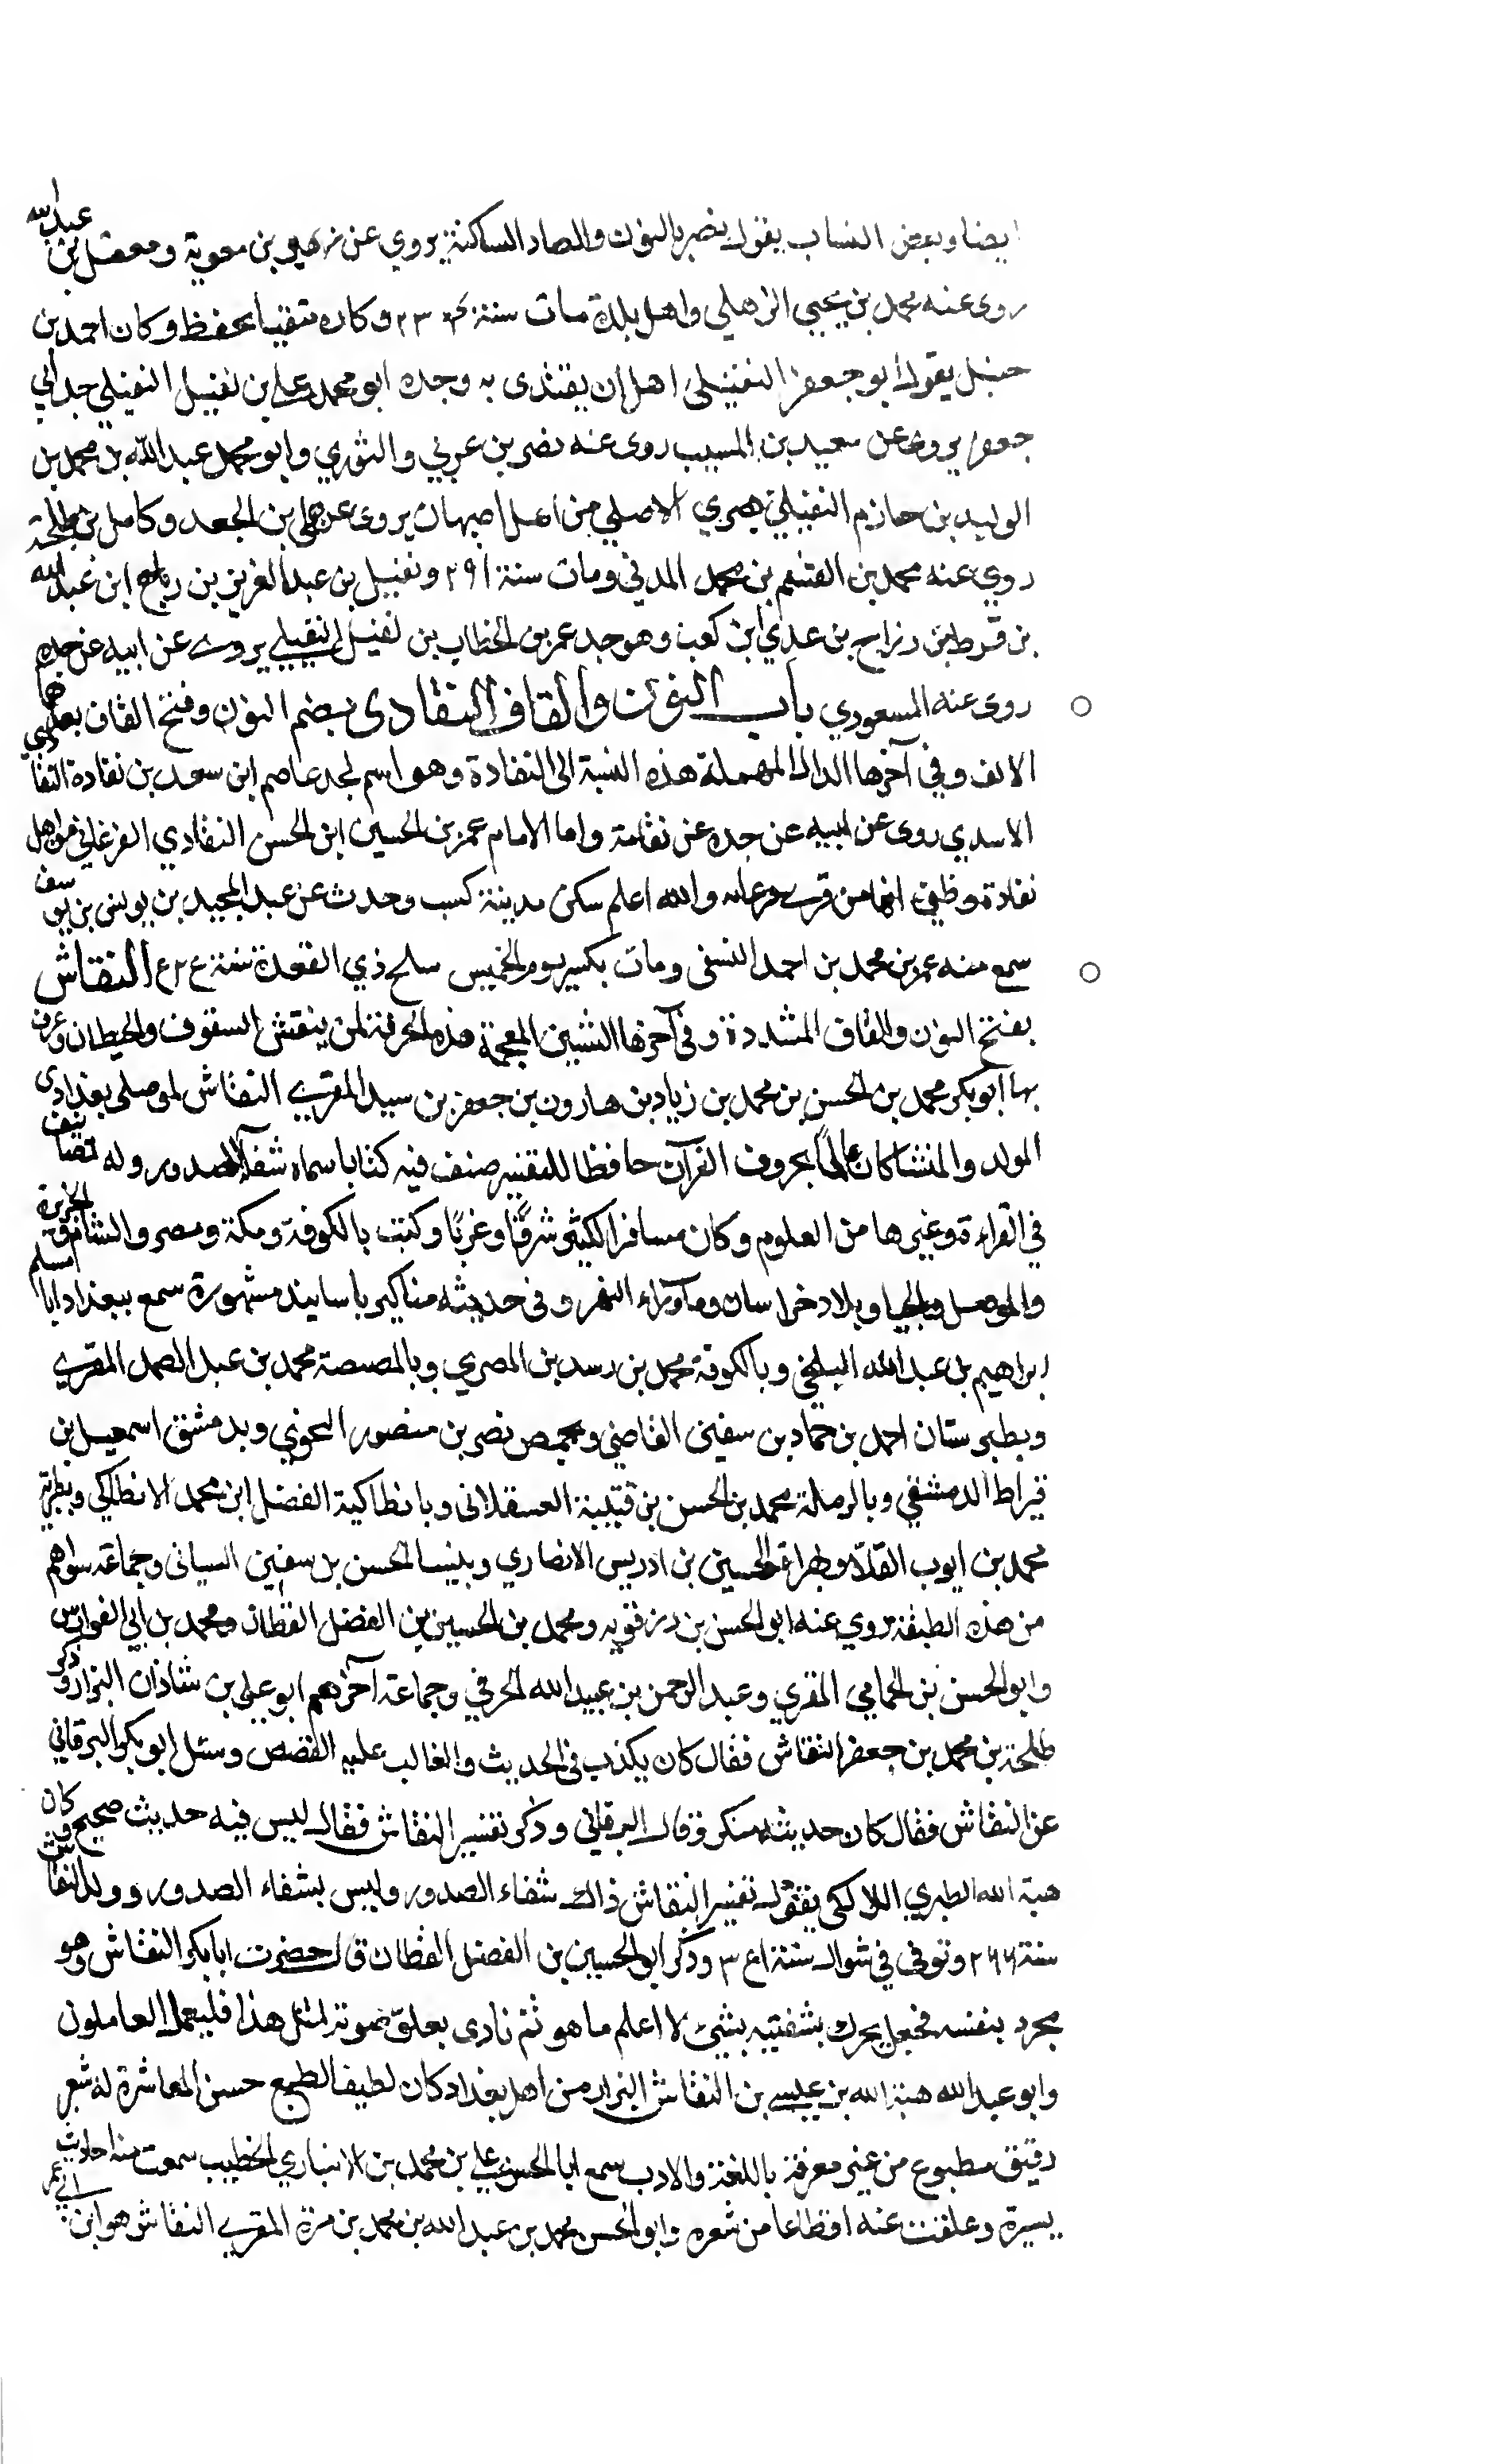 ايضا وبعض النساب يقول نصر بالنون والصاد الساكنة يروي عن زهير بن معوية ومعقل بن عبدالله
روى عنه محمد بن يحيى الذهلي واهل بلده مات سنة ٢٣٤ وكان متقنا يحفظ وكان احمد بن
حنبل يقول ابو جعفر النفيلي اهل ان يقتدى به وجده ابو محمد علي بن نفيل النفيلي جد ابي
جعفر يروي عن سعيد بن المسيب روى عنه نضر بن عربي والثوري وابو محمد عبد الله بن محمد بن
الوليد بن حازم النفيلي بصري الاصلي من اهل اصبهان يروى عن علي بن الجعد وكامل بن طلحة
روي عنه محمد بن القسم بن محمد المدني ومات سنة ٢٩١ ونفيل بن عبد العزيز بن رباح ابن عبد الله
بن قرط بن رزاح بن عدي ابن كعب وهو جد عمر بن الخطاب بن نفيل النفيلي يروى عن ابيه عن جده
روى عنه المسعودي باب النون والقاف النقادى بضم النون وفتح القاف بعدهما
الالف وفي آخرها الدال المهملة هذه النسبة الى النقادة وهو اسم لجد عاصم ابن سعد بن نقادة النقادي
الاسدي روى عن ابيه عن جده عن نقادة واما الامام عمر بن الحسين ابن الحسن النقادي الفرغاني من اهل
نقادة وظني انها من قرى فرغانه والله اعلم سكن مدينة كسب وحدث عن عبد المجيد بن يونس بن يوسف
سمع منه عمر بن محمد بن احمد النسفى ومات بكس يوم الخميس سلخ ذي القعدة سنة ٤٢٤ النقاش
بفتح النون والقاف المشددة وفى آخرها الشين المعجمة هذه الحرفة لمن ينقش السقوف والحيطان وعرف
بها ابو بكر محمد بن الحسن بن محمد بن زياد بن هارون بن جعفر بن سيد المقرى النقاش الموصلى بغدادى
المولد والمنشا كان عالماً بحروف القرآن حافظا للتفسير صنف فيه كتابا سماه شفآء الصدور وله تصانيف
في القراءة وغيرها من العلوم وكان مسافرا لكثير شرقًا وغربًا وكتب بالكوفة ومكة ومصر والشام والجزيرة
والموصل والجبال وبلاد خراسان وماورآء النهر وفى حديثه مناكير باسانيد مشهورة سمع ببغداد ابا مسلم
ابراهيم بن عبد الله البلخي وبالكوفة محمد بن رسد بن المصري وبالمصصة محمد بن عبد الصمد المقرى
وبطبرستان احمد بن حماد بن سفين القاضي وبحمص نصر بن منصور النحوي وبدمشق اسمعيل بن
قيراط الدمشقي وبالرملة محمد بن الحسن بن قتيبة العسقلانى وبانطاكية الفضل ابن محمد الانطاكي وبطبرية
محمد بن ايوب القلا وبهراة الحسين بن ادريس الانصاري وبنسا الحسن بن سفين السيانى وجماعة سواهم
من هذه الطبقة روي عنه ابو الحسن بن رزقويه ومحمد بن الحسين بن الفضل القطان ومحمد بن ابي الفوارس
وابو الحسن بن الحمامي المقري وعبد الرحمن بن عبيد الله الحرفي وجماعة آخرهم ابو علي بن شاذان البزار وذكر
طلحة بن محمد بن جعفر النقاش فقال كان يكذب فى الحديث والغالب عليه القصص وسئل ابو بكر البرقاني
عن النقاش فقال كان حديثه منكر وقال البرقاني وذكر تفسير النقاش فقال ليس فيه حديث صحيح وكان
هبة الله الطبري اللالكي يقول تفسير النقاش ذاك شفاء الصدور وليس بشفاء الصدور وولد النقاش
سنة ٢٦٦ وتوفى في شوال سنة ٣٤١ وذكر ابو الحسين بن الفضل القطان قال حضرت ابا بكر النقاش وهو
يجرد بنفسه فجعل يحرك بشفتيه بشيئ لا اعلم ما هو ثم نادى بعلو صوته لمثل هذا فليعمل العاملون
وابو عبد الله هبة الله بن عيسى بن النقاش البزار من اهل بغداد كان لطيف الطبع حسن المعاشرة له شعر
رقيق مطبوع من غير معرفة باللغة والادب سمع ابا الحسن علي بن محمد بن الانباري الخطيب سمعت منه احاديث
يسيرة وعلقت عنه اقطاعا من شعره وابو الحسن محمد بن عبد الله بن محمد بن مرة المقرى النقاش هو ابن ابي عمر